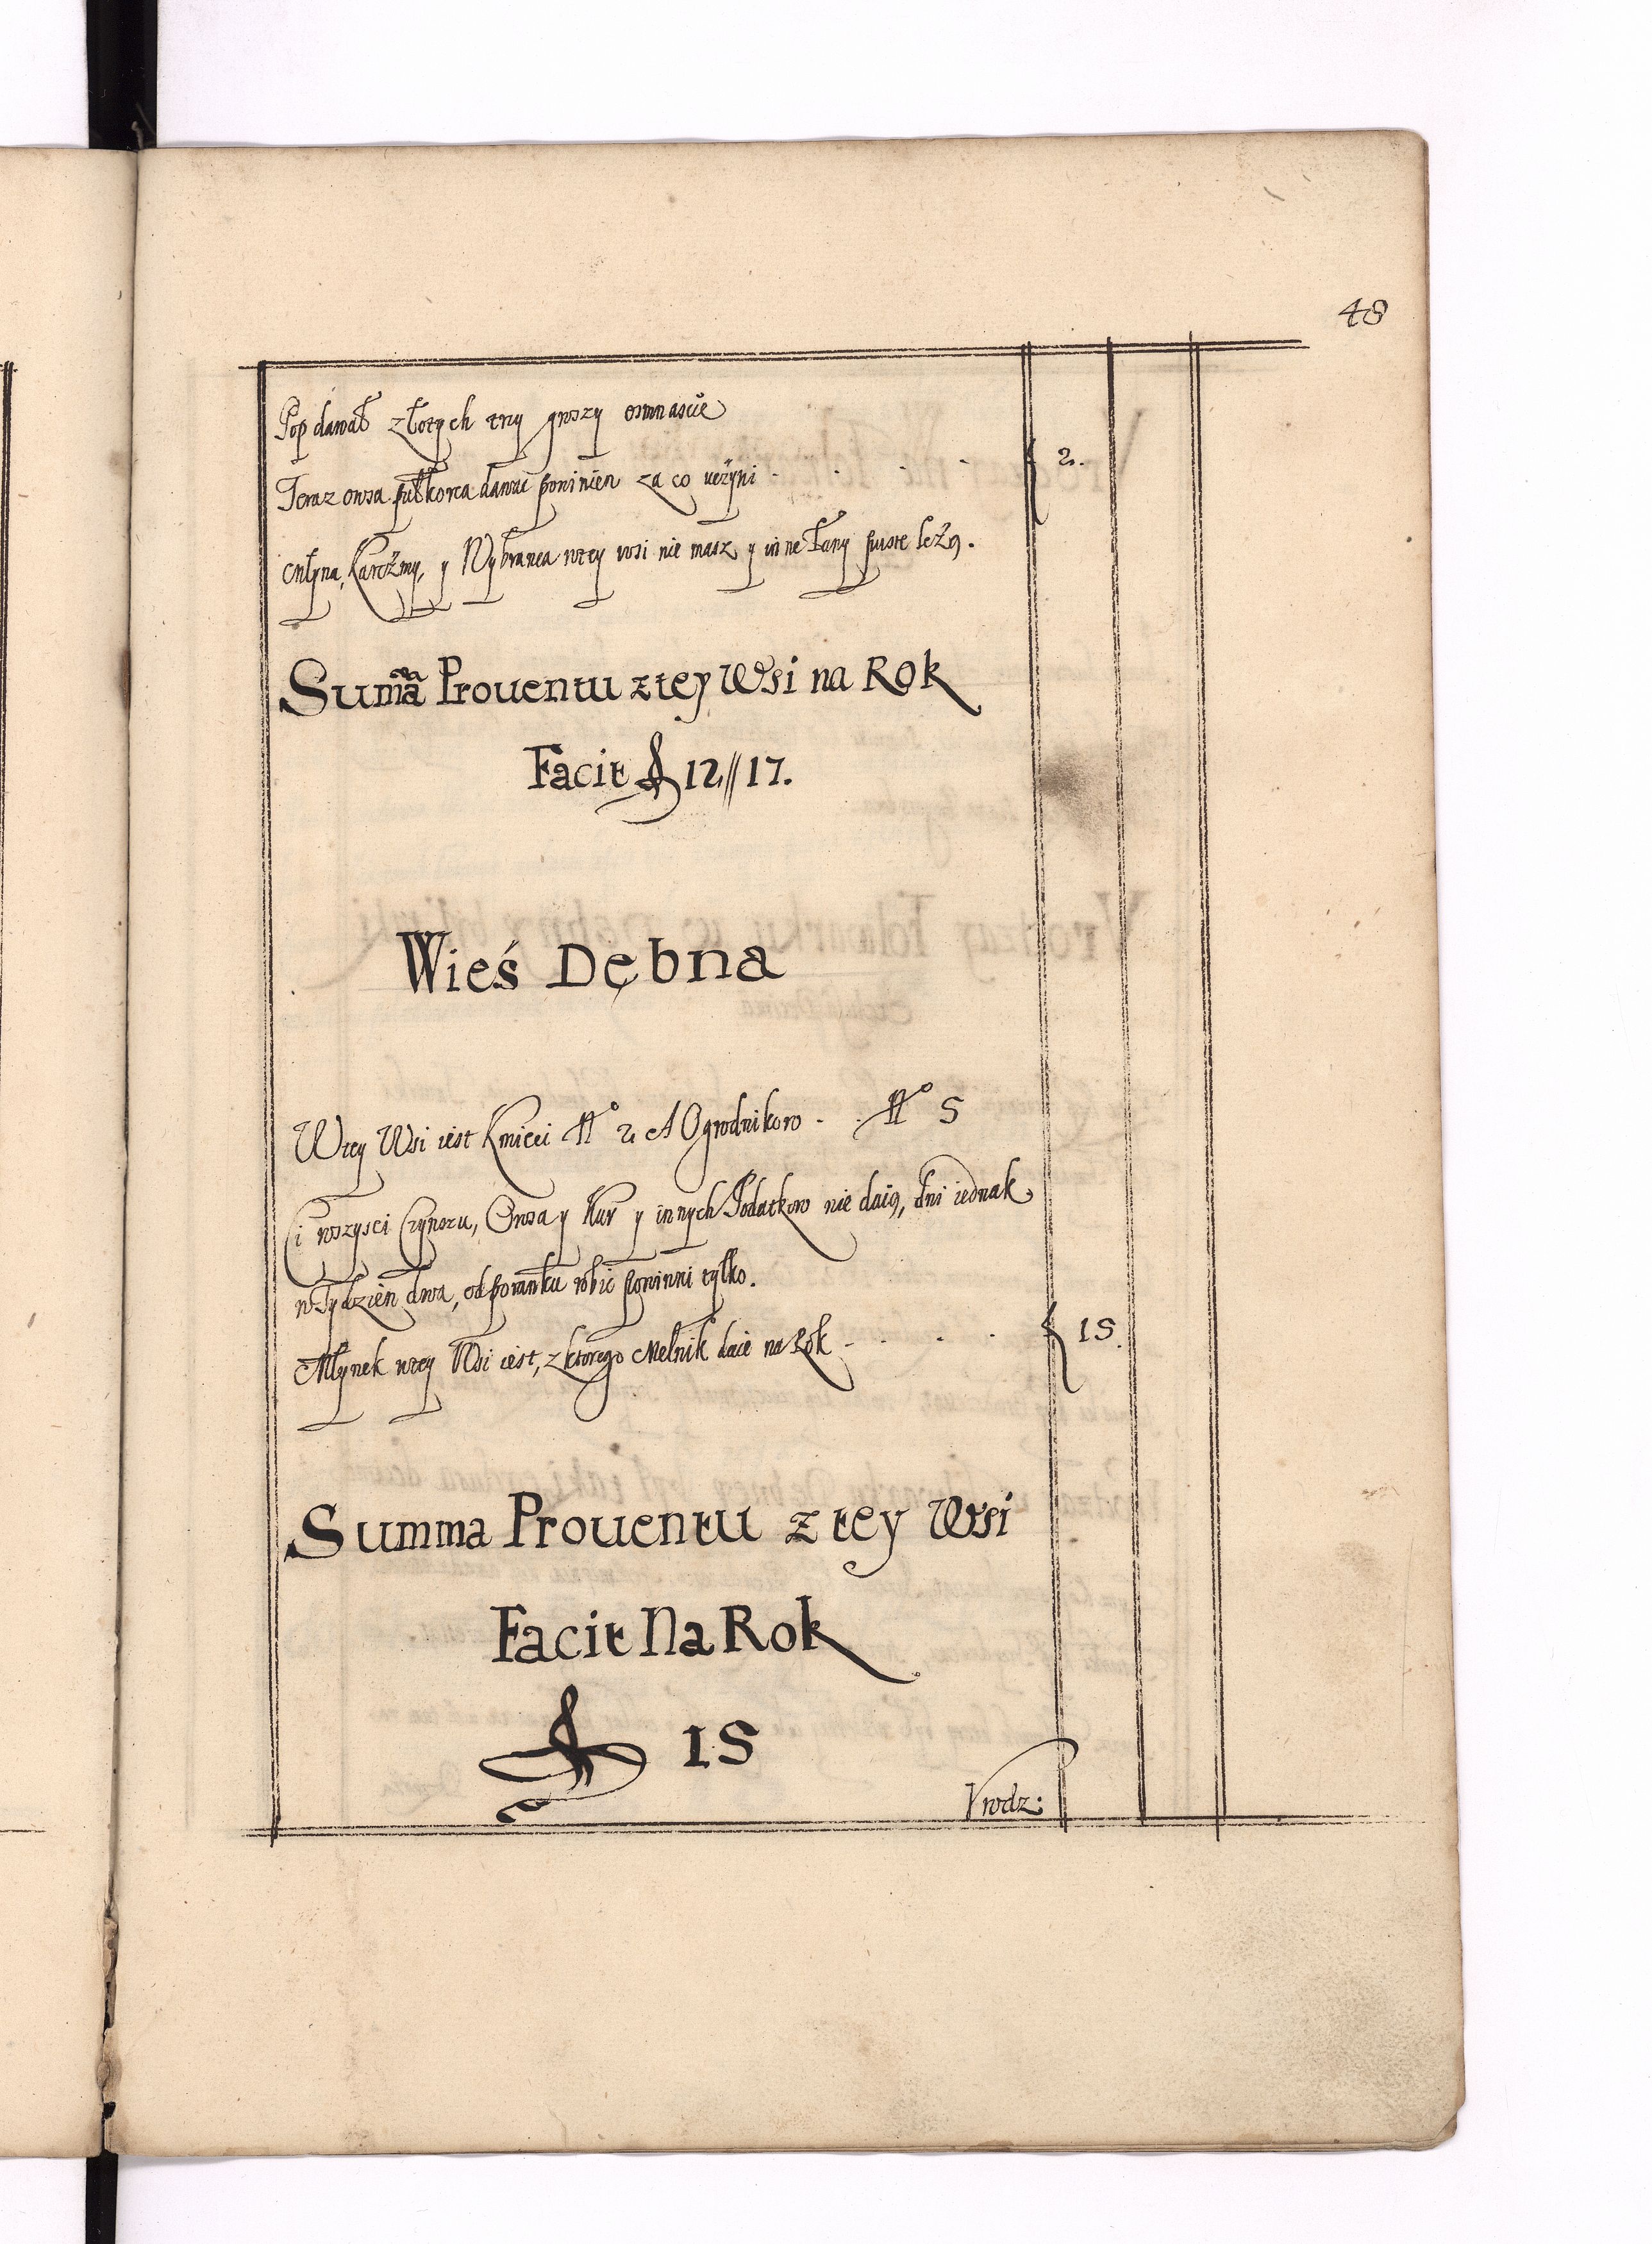 48
Pop dawał złotych trzy groszy osmnascie
Teraz owsa pułkorca dawać powinien za co uczyni - . . . 2.
Młyna, Karczmy, y Wybranca wtey wsi nie masz y inne Łany puste leżą.
Summa Prouentu z tey Wsi na Rok
Facit ƒ 12//17.
Wieś Dębna
Wtey Wsi iest Kmieci No 2 A Ogrodnikow - . No 5
Ci wszysci Czynszu, Owsa y Kur y innych Podatkow nie daią, dni iednak
w Tydzien dwa, od poranku robić powinni tylko.
Młynek wtey Wsi iest, z ktorego Melnik daie na Rok - . . . 15.
Summa Prouentu z tey Wsi
Facit Na Rok
ƒ 15
Vrodz: